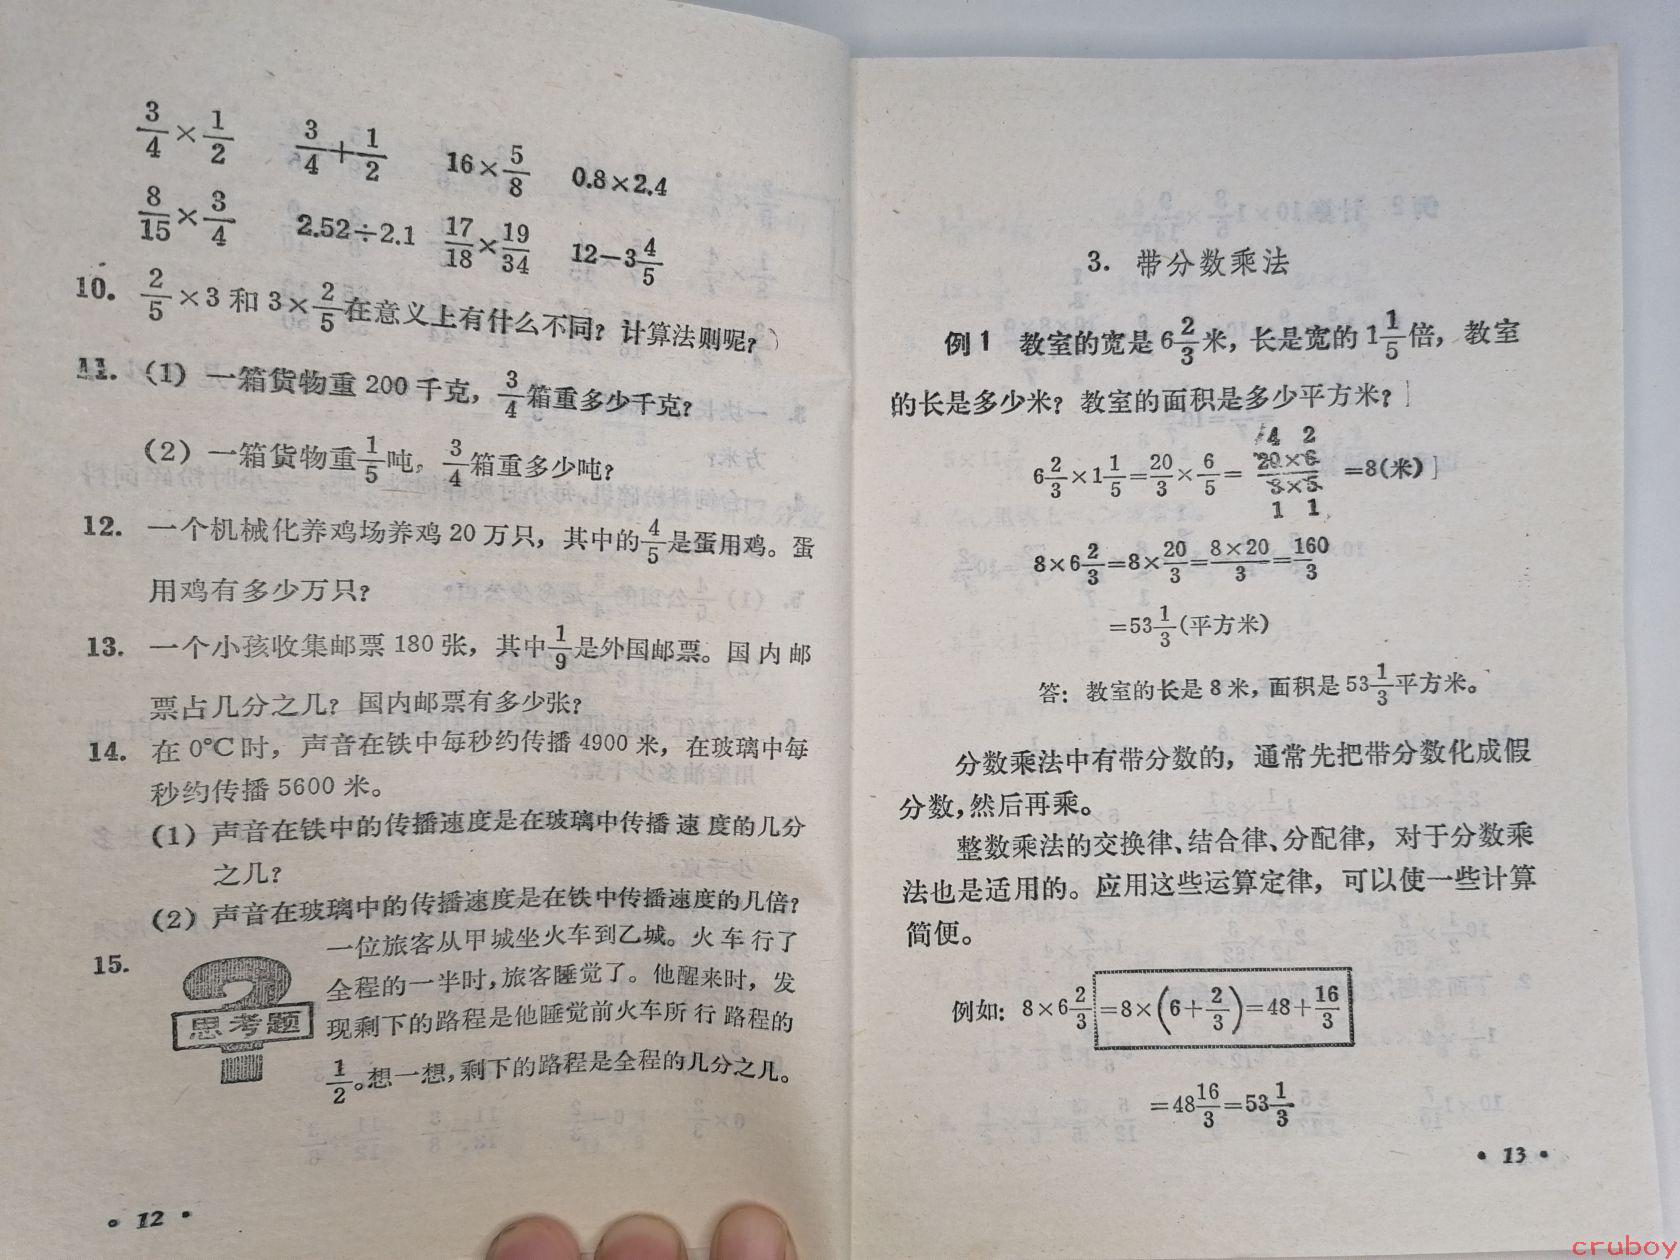 3/4×1/2 3/4+1/2 16×5/8 0.8×2.4
8/15×3/4 2.52÷2.1 17/18×19/34 12-3 4/5
10. 2/5×3和3×2/5在意义上有什么不同？计算法则呢？
11.（1）一箱货物重200千克，3/4箱重多少千克？
（2）一箱货物重1/5吨。3/4箱重多少吨？
12. 一个机械化养鸡场养鸡20万只，其中的4/5是蛋用鸡。蛋
用鸡有多少万只？
13. 一个小孩收集邮票180张，其中1/9是外国邮票。国内邮
票占几分之几？国内邮票有多少张？
14. 在0℃时，声音在铁中每秒约传播4900米，在玻璃中每
秒约传播5600米。
（1）声音在铁中的传播速度是在玻璃中传播速度的几分
之几？
（2）声音在玻璃中的传播速度是在铁中传播速度的几倍？
15. 一位旅客从甲城坐火车到乙城。火车行了
全程的一半时，旅客睡觉了。他醒来时，发
思考题
现剩下的路程是他睡觉前火车所行路程的
1/2。想一想，剩下的路程是全程的几分之几。
• 12 •
3. 带分数乘法
例1 教室的宽是6 2/3米，长是宽的1 1/5倍，教室
的长是多少米？教室的面积是多少平方米？
4 2
6 2/3×1 1/5=20/3×6/5=20×6/3×5=8（米）
1 1
8×6 2/3=8×20/3=8×20/3=160/3
=53 1/3（平方米）
答：教室的长是8米，面积是53 1/3平方米。
分数乘法中有带分数的，通常先把带分数化成假
分数，然后再乘。
整数乘法的交换律、结合律、分配律，对于分数乘
法也是适用的。应用这些运算定律，可以使一些计算
简便。
例如：8×6 2/3=8×(6+2/3)=48+16/3
=48 16/3=53 1/3
• 13 •
cruboy